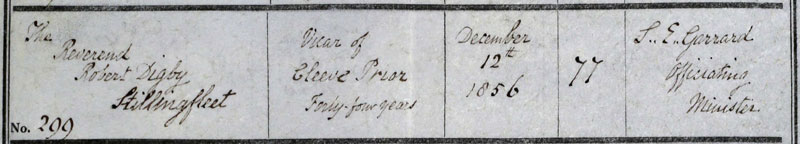 The
Reverend
Robert Digby
Stillingfleet
No. 299
Vicar of
Cleeve Prior
Forty-four years
December
12th
1856
77
S. E. Garrard
Officiating
Minister